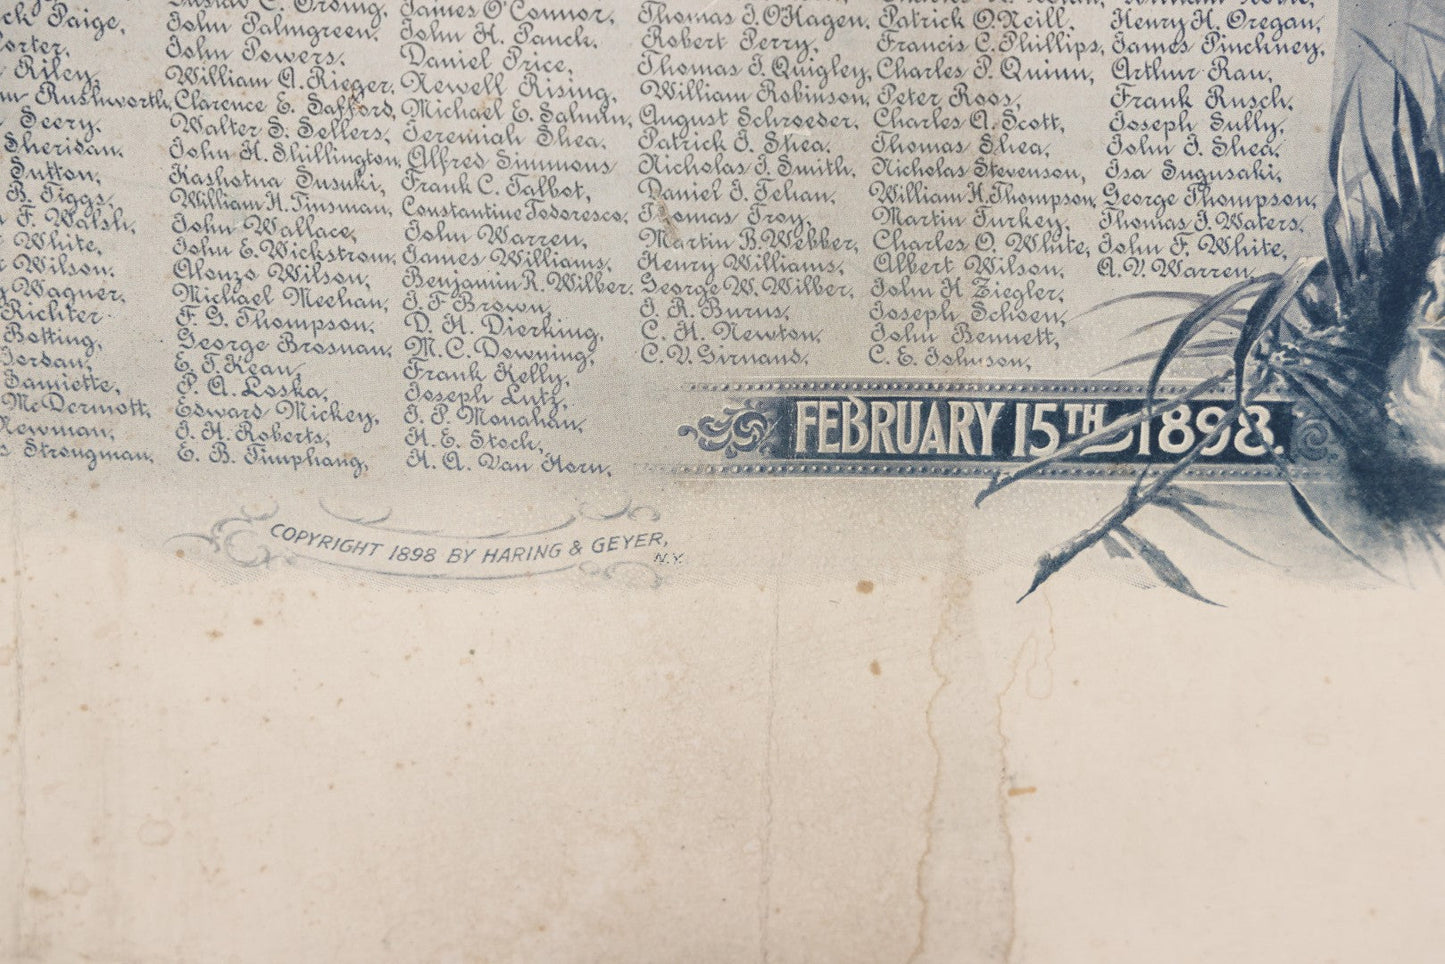 Gustav C. Orsing, James O'Connor, Thomas J. O'Hagen, Patrick O'Neill, Henry H. Oregan,
Paige, John Palmgreen, John H. Panck, Robert Perry, Francis C. Phillips, James Pinckney,
Porter, John Powers, Daniel Price, Thomas J. Quigley, Charles P. Quinn, Arthur Rau,
Riley, William A. Rieger, Newell Rising, William Robinson, Peter Roos, Frank Rusch,
Rushworth, Clarence E. Safford, Michael E. Salmin, August Schroeder, Charles A. Scott, Joseph Sully,
Seery, Walter S. Sellers, Jeremiah Shea, Patrick J. Shea, Thomas Shea, John J. Shea,
Sheridan, John H. Shillington, Alfred Simmons Nicholas J. Smith, Nicholas Stevenson, Isa Sugusaki,
Sutton, Kashotna Susuki, Frank C. Talbot, Daniel J. Tehan, William H. Thompson, George Thompson,
B. Tiggs, William H. Tinsman, Constantine Todoresco, Thomas Troy, Martin Turkey, Thomas J. Waters,
F. Walsh, John Wallace, John Warren, Martin B. Webber, Charles O. White, John F. White,
White, John E. Wickstrom, James Williams, Henry Williams, Albert Wilson, A. V. Warren,
Wilson, Alonzo Wilson, Benjamin R. Wilber, George W. Wilber, John H. Ziegler,
Wagner, Michael Meehan, J. F. Brown, J. R. Burns, Joseph Schoen,
Richter F. G. Thompson, D. H. Dierking, C. H. Newton John Bennett,
Botting, George Brosnan, M. C. Downing, C. V. Girnans, C. E. Johnson,
Jordan, E. T. Kean, Frank Kelly,
Lamiette, P. A. Loska, Joseph Lutz,
McDermott, Edward Mickey, J. P. Monahan,
Newman, J. H. Roberts, H. E. Stoch,
Strongman, E. B. Timphang, H. A. Van Horn,
FEBRUARY 15TH 1898.
COPYRIGHT 1898 BY HARING & GEYER,
N.Y.